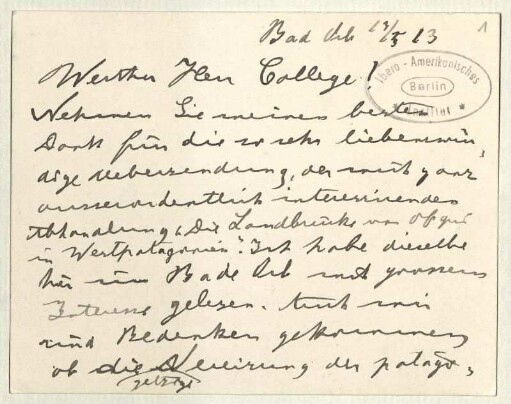 Bad Elb 13/5 13
1
Werther Herr College!
Ibero-Amerikanisches
Berlin
* Institut *
Nehmen Sie meinen besten
Dank für die so sehr liebenswür-
dige Uebersendung, der mich ganz
ausserordentlich interessirenden
Abhandlung „Die Landbrücke von Ofqui
in Westpatagonien". Ich habe dieselbe
hier in Bade Elb mit grossem
Interesse gelesen. Auch mir
sind Bedenken gekommen
ob die Vereisung der patago-
gebirge